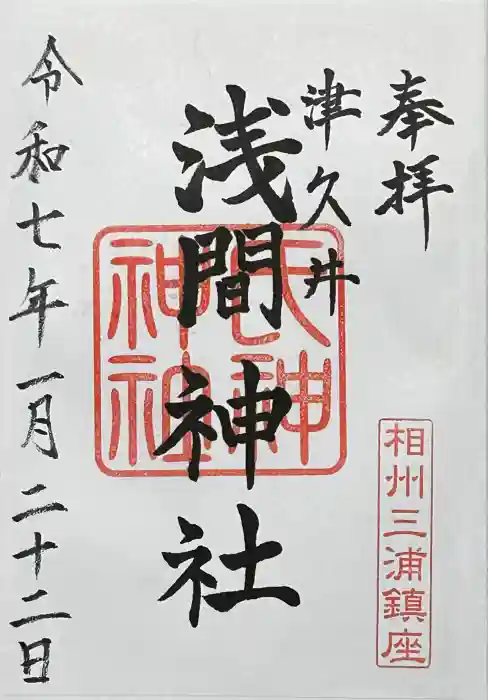 奉拝
相州三浦鎮座
津久井
浅間神社
令和七年一月二十二日